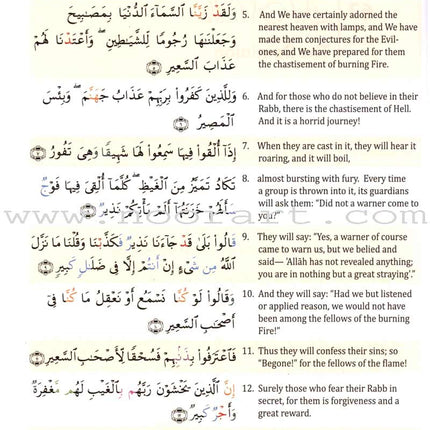 وَلَقَدْ زَيَّنَّا السَّمَآءَ الدُّنْيَا بِمَصَـٰبِيحَ
وَجَعَلْنَـٰهَا رُجُومًا لِّلشَّيَـٰطِينِ ۖ وَأَعْتَدْنَا لَهُمْ
عَذَابَ السَّعِيرِ
5. And We have certainly adorned the
nearest heaven with lamps, and We have
made them conjectures for the Evil-
ones, and We have prepared for them
the chastisement of burning Fire.
وَلِلَّذِينَ كَفَرُوا بِرَبِّهِمْ عَذَابُ جَهَنَّمَ ۖ وَبِئْسَ
الْمَصِيرُ
6. And for those who do not believe in their
Rabb, there is the chastisement of Hell.
And it is a horrid journey!
إِذَآ أُلْقُوا فِيهَا سَمِعُوا لَهَا شَهِيقًا وَهِىَ تَفُورُ
7. When they are cast in it, they will hear it
roaring, and it will boil,
تَكَادُ تَمَيَّزُ مِنَ الْغَيْظِ ۖ كُلَّمَآ أُلْقِىَ فِيهَا فَوْجٌ
سَأَلَهُمْ خَزَنَتُهَآ أَلَمْ يَأْتِكُمْ نَذِيرٌ
8. almost bursting with fury. Every time
a group is thrown into it, its guardians
will ask them: “Did not a warner come to
you?”
قَالُوا بَلَىٰ قَدْ جَآءَنَا نَذِيرٌ فَكَذَّبْنَا وَقُلْنَا مَا نَزَّلَ
اللَّهُ مِن شَىْءٍ إِنْ أَنتُمْ إِلَّا فِى ضَلَـٰلٍ كَبِيرٍ
9. They will say: “Yes, a warner of course
came to warn us, but we belied and
said— ‘Allāh has not revealed anything;
you are in nothing but a great straying’.”
وَقَالُوا لَوْ كُنَّا نَسْمَعُ أَوْ نَعْقِلُ مَا كُنَّا فِىٓ
أَصْحَـٰبِ السَّعِيرِ
10. And they will say: “Had we but listened
or applied reason, we would not have
been among the fellows of the burning
Fire!”
فَاعْتَرَفُوا بِذَنۢبِهِمْ فَسُحْقًا لِّأَصْحَـٰبِ السَّعِيرِ
11. Thus they will confess their sins; so
“Begone!” for the fellows of the flame!
إِنَّ الَّذِينَ يَخْشَوْنَ رَبَّهُم بِالْغَيْبِ لَهُم مَّغْفِرَةٌ
وَأَجْرٌ كَبِيرٌ
12. Surely those who fear their Rabb in
secret, for them is forgiveness and a
great reward.